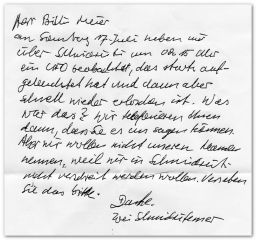 Herr Billi Meier
am Samstag 17. Juni haben wir
über Schmidrüti um 00.15 Uhr
ein UFO beobachtet, das stark auf-
geleuchtet hat und dann aber
schnell wieder erloschen ist. Was
war das? Wir telefonieren Ihnen
dann, dass Sie es uns sagen können.
Aber wir wollen nicht unseren Namen
nennen, weil wir in Schmidrüti
nicht verdreit werden wollen. Verstehen
Sie das bitte.
Danke.
zwei Schmidrütener